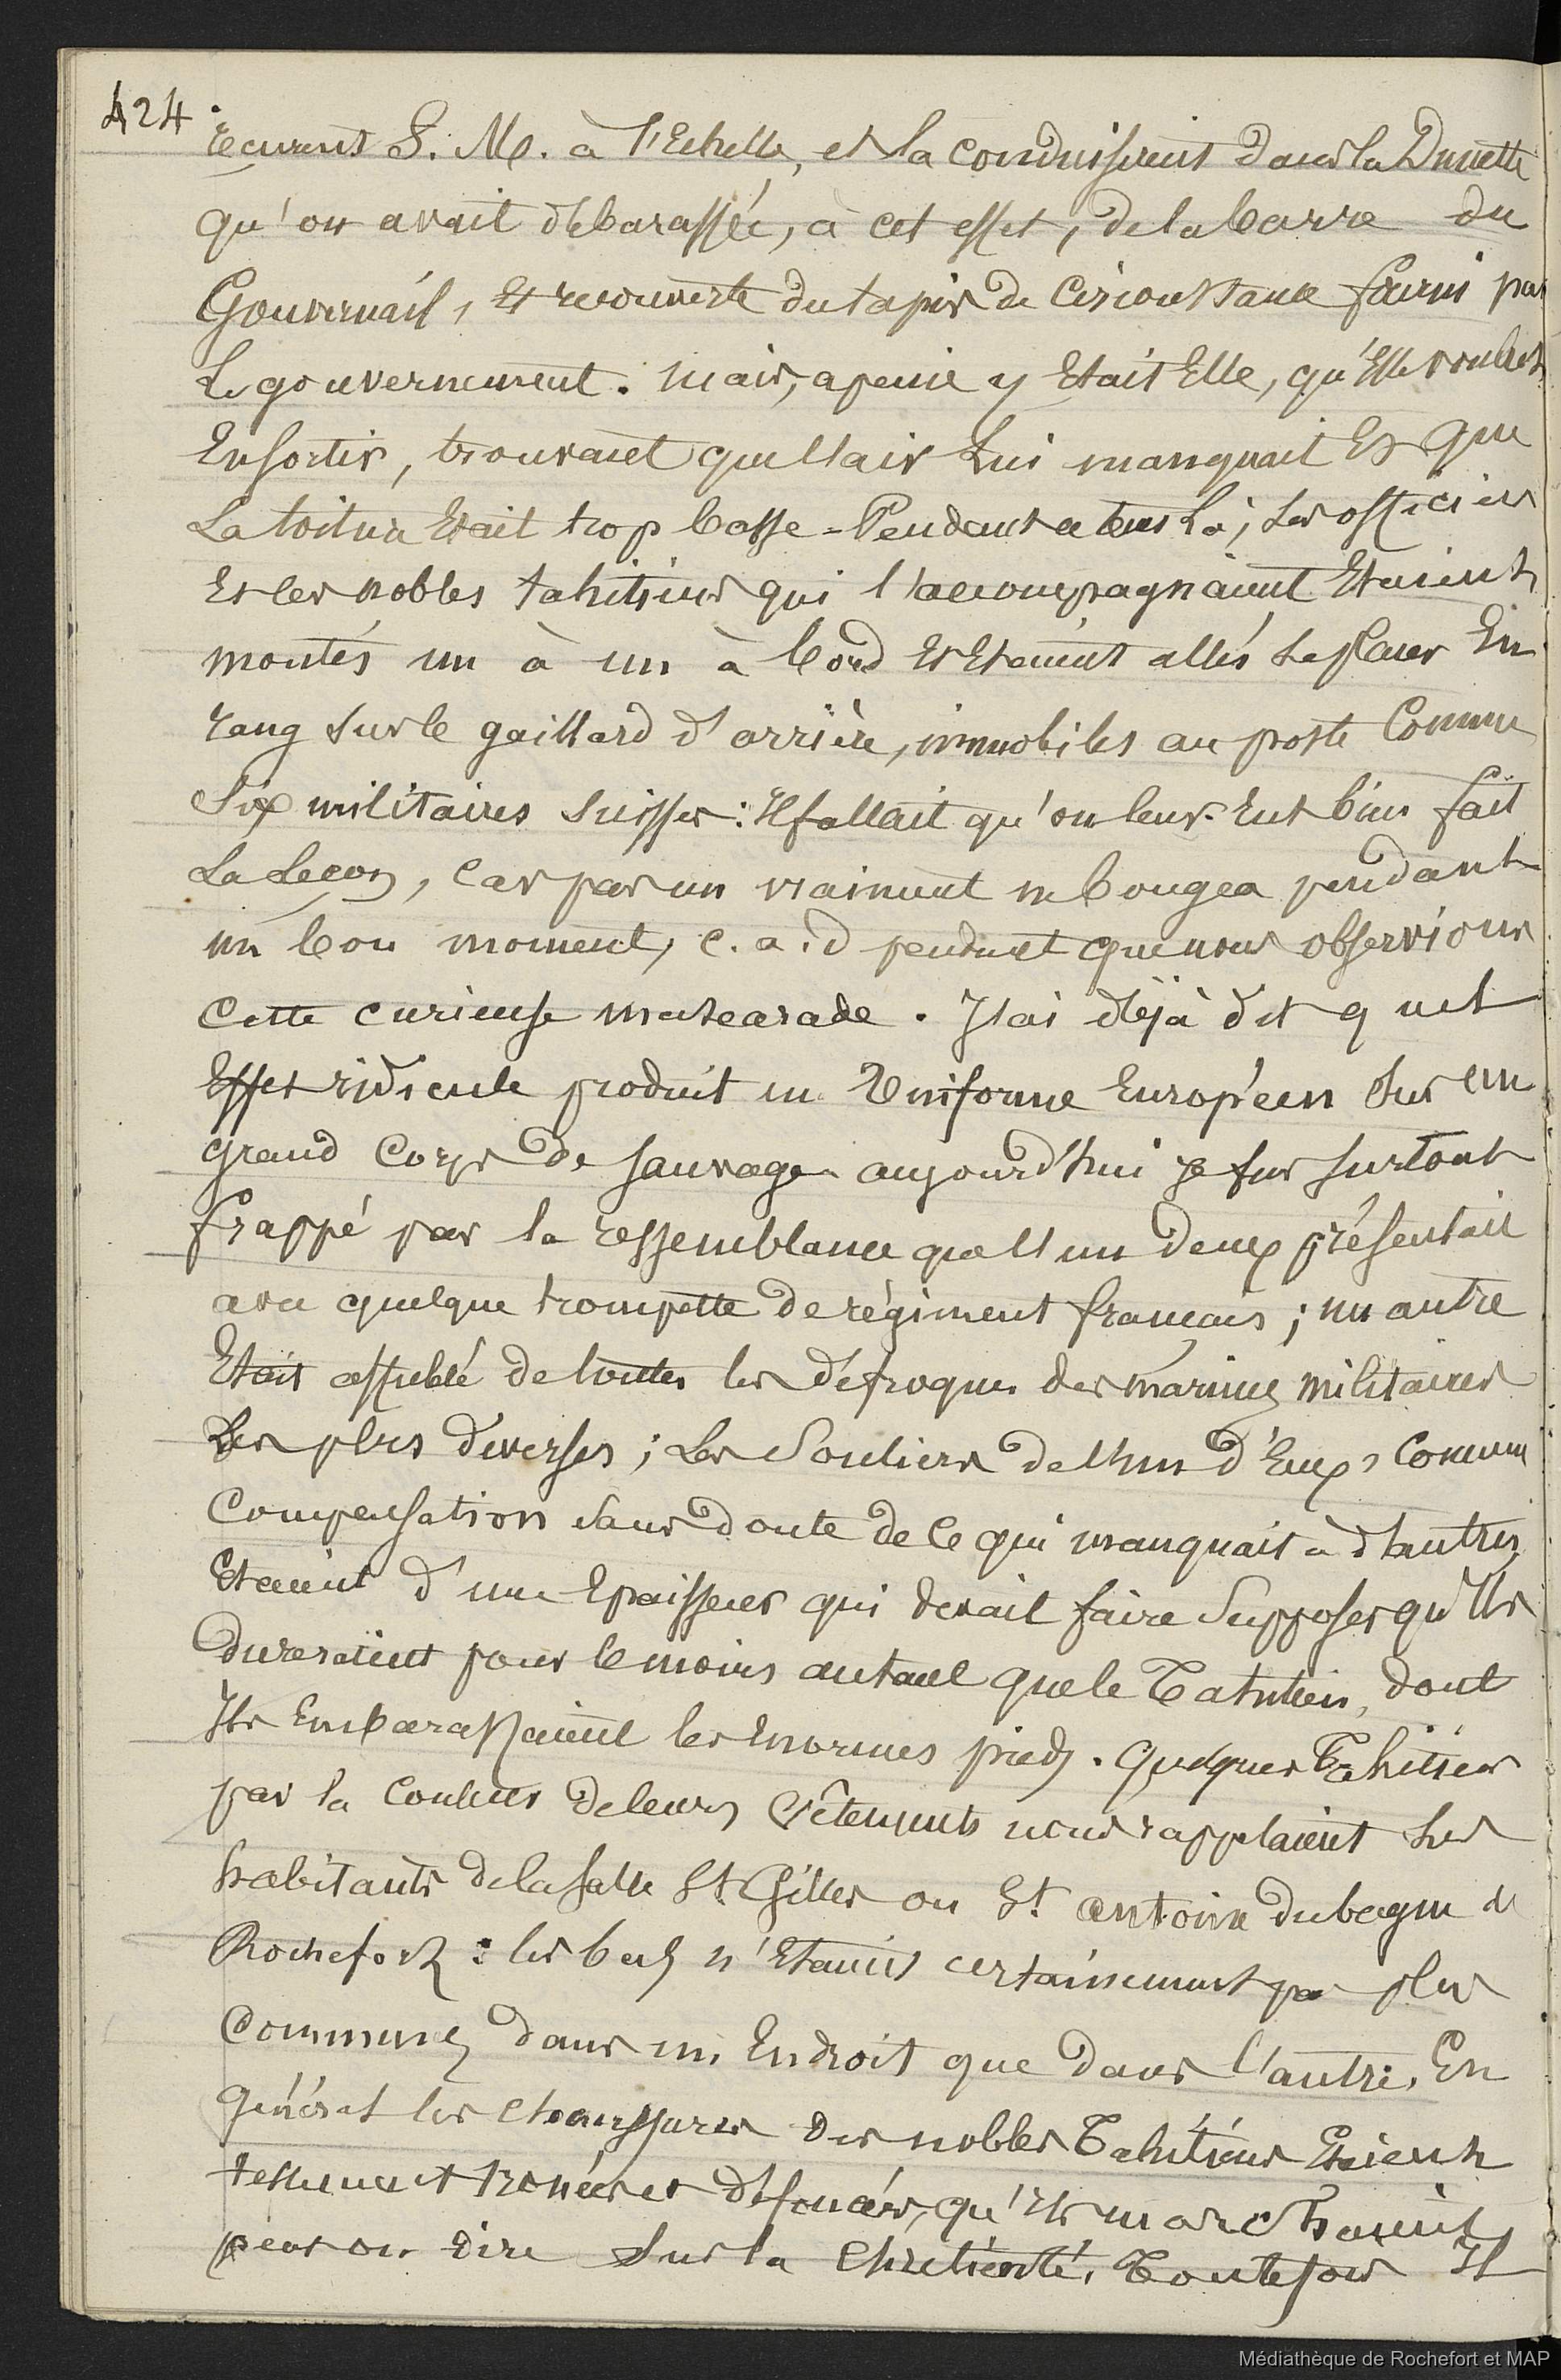 424
recurent S. M. à l'Echelle, et la conduisirent dans la Dunette
qu'on avait débarassée, à cet effet, de la barre du
Gouvernail, et recouverte du tapis de Circonstance fourni par
Le gouvernement. Mais, a peine y Etait Elle, qu'Elle voulut
En sortir, trouvant que l'air Lui manquait Et que
La toiture Etait trop basse - Pendant ce tems là, Les officiers
Et les nobles tahitiens qui l'accompagnaient Etaient
montés un à un à bord Et Etaient allés se placer En
rang sur le gaillard d'arrière, immobiles au poste Comme
Six militaires Suisses: Il fallait qu'on leur Eut bien fait
La Leçon, Car pas un vraiment ne bougea pendant
un bon moment, c. a. d pendant que nous observions
Cette curieuse mascarade. J'ai déjà dit quel
Effet ridicule produit un Uniforme Européen sur un
grand Corps de sauvage aujourd'hui je fus surtout
frappé par la ressemblance que l'un d'eux présentait
avec quelque trompette de régiment français; un autre
Etait affublé de toutes les défroques des marines militaires
Les plus diverses; Les Souliers de l'un d'Eux, Comme
Compensation sans doute de ce qui manquait à d'autres,
Etaient d'une Epaisseur qui devait faire Supposer qu'Ils
dureraient pour le moins autant que le Tahitien, dont
Ils Embarassaient les Enormes pieds. Quelques Tahitiens
par la Couleur de leurs Vêtements nous rappelaient les
habitants de la salle St Gilles ou St. Antoine du bagne de
Rochefort: les bas n'Etaient certainement pas plus
Communs dans un Endroit que dans l'autre. En
général les Chaussures des nobles Tahitiens Etaient
tellement trouées et défoncées, qu'Ils marchaient
peut on dire sur la Chrétienté. Toutefois Il
Médiathèque de Rochefort et MAP